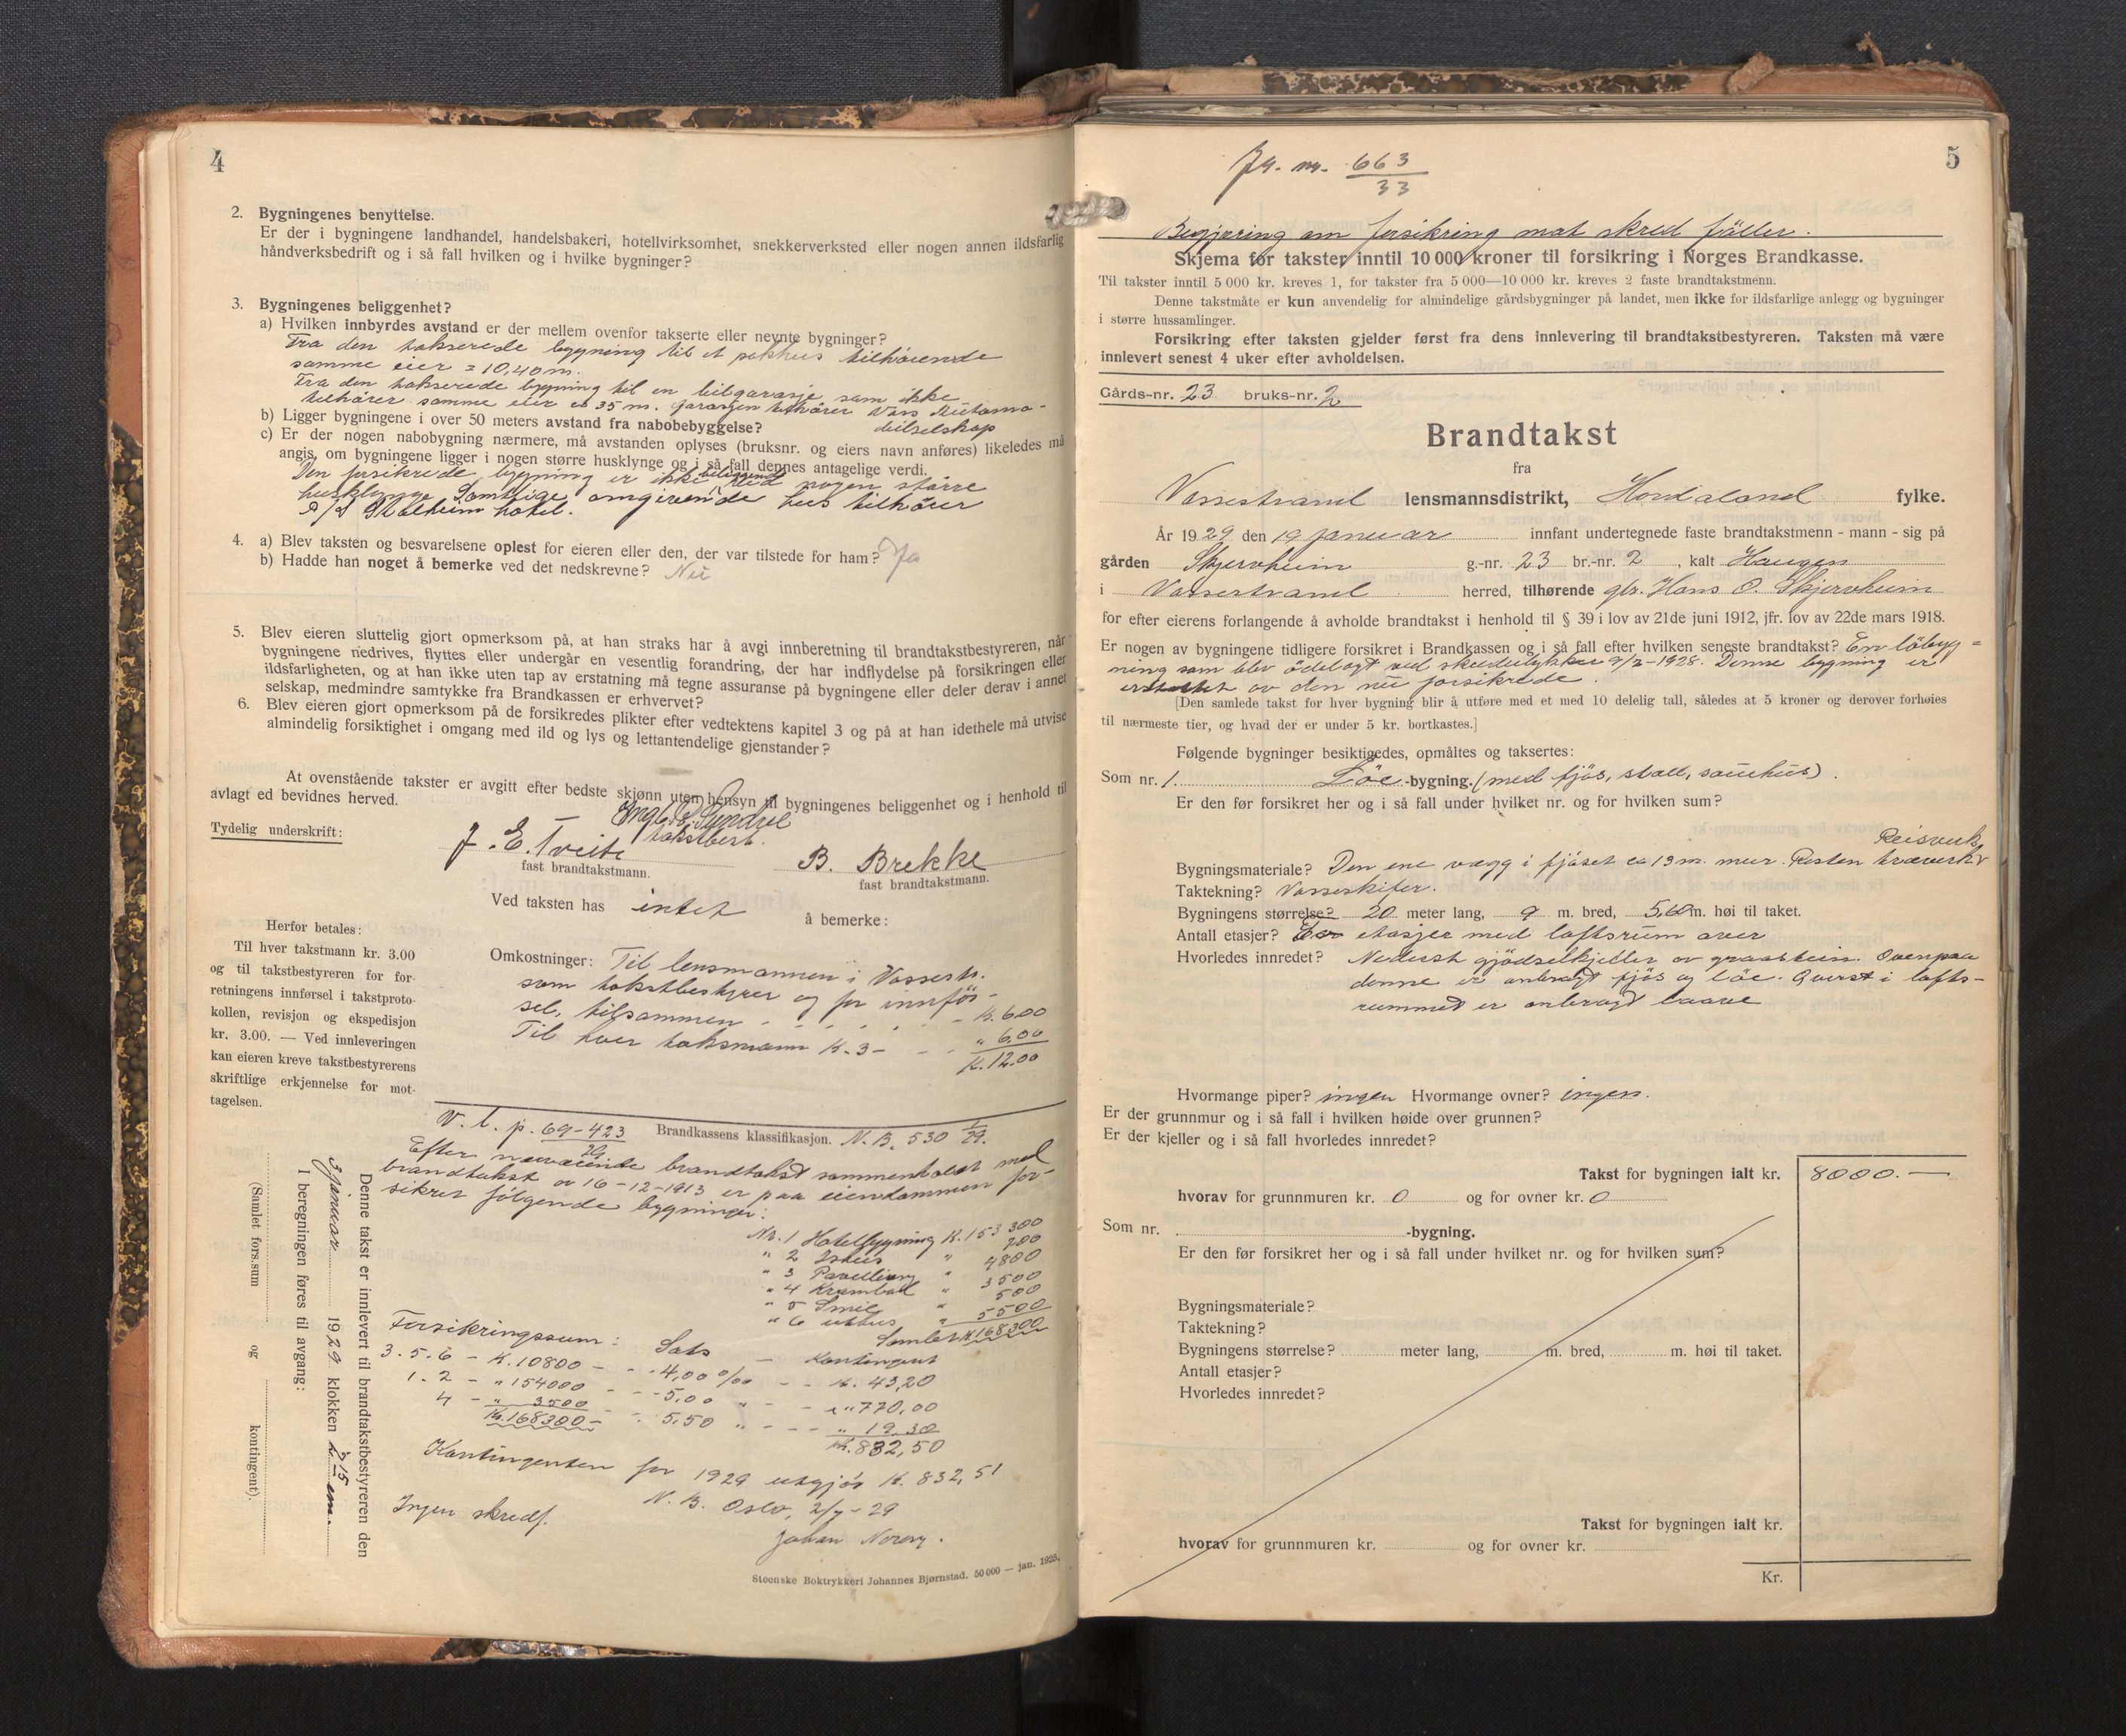 4
2. Bygningenes benyttelse.
Er der i bygningene landhandel, handelsbakeri, hotellvirksomhet, snekkerverksted eller nogen annen ildsfarlig
håndverksbedrift og i så fall hvilken og i hvilke bygninger?
3. Bygningenes beliggenhet?
a) Hvilken innbyrdes avstand er der mellem ovenfor takserte eller nevnte bygninger?
Fra den takserede bygning til et pakhus tilhørende
samme eier = 10,40 m.
Fra den takserede bygning til en bilgarasje som ikke
tilhører samme eier er 35 m. Garasjen tilhører Voss
b) Ligger bygningene i over 50 meters avstand fra nabobebyggelse?
c) Er der nogen nabobygning nærmere, må avstanden oplyses (bruksnr. og eiers navn anføres) likeledes må
angis, om bygningene ligger i nogen større husklynge og i så fall dennes antagelige verdi.
Den forsikrede bygning er ikke beliggende ved nogen større
husklynge. Samtlige omgivende hus tilhører
A/S Stalheim hotel.
4. a) Blev taksten og besvarelsene oplest for eieren eller den, der var tilstede for ham? Ja
b) Hadde han noget å bemerke ved det nedskrevne? Nei
5. Blev eieren sluttelig gjort opmerksom på, at han straks har å avgi innberetning til brandtakstbestyreren, når
bygningene nedrives, flyttes eller undergår en vesentlig forandring, der har indflydelse på forsikringen eller
ildsfarligheten, og at han ikke uten tap av erstatning må tegne assuranse på bygningene eller deler derav i annet
selskap, medmindre samtykke fra Brandkassen er erhvervet?
6. Blev eieren gjort opmerksom på de forsikredes plikter efter vedtektens kapitel 3 og på at han idethele må utvise
almindelig forsiktighet i omgang med ild og lys og lettantendelige gjenstander?
At ovenstående takster er avgitt efter bedste skjønn uten hensyn til bygningenes beliggenhet og i henhold til
avlagt ed bevidnes herved.
takstbest.
Tydelig underskrift:
J. E. Tveite
fast brandtakstmann.
B. Brekke
fast brandtakstmann.
Ved taksten has intet å bemerke:
Herfor betales:
Til hver takstmann kr. 3.00
og til takstbestyreren for for-
retningens innførsel i takstproto-
kollen, revisjon og ekspedisjon
kr. 3.00. — Ved innleveringen
kan eieren kreve takstbestyrerens
skriftlige erkjennelse for mot-
tagelsen.
Omkostninger: Til lensmannen i Vossestr.
som takstbestyrer og for innfør-
sel, tilsammen - - - - - - K. 6.00
Til hver taksmann K. 3 - - - " 6.00
K. 12.00
V. t. p. 69-423/29 Brandkassens klassifikasjon. N. B. 530 1/29.
Efter nærværende brandtakst sammenholdt med
brandtakst av 16-12-1913 er paa eiendommen for-
sikret følgende bygninger:
Nr. 1 Hotelbygning K. 153 300
" 2 Ishus " 700
" 3 Pavelliong " 4800
" 4 Krambod " 3500
" 5 Smie " 500
" 6 uthus " 5500
Samlet K. 168300
Forsikringssum: Sats - Kontingent
3. 5. 6 - K. 10800 - - - 4,00 0/00 - - K. 43,20
1. 2 - " 154000 - - - 5,00 " - - " 770,00
4 - " 3500 - - 5,50 " - - - " 19.30
K. 168300 - K. 832,50
Kontingenten for 1929 utgjør K. 832,51
N. B. Oslo, 2/7-29
Ingen skredf.
Johan
Steenske Boktrykkeri Johannes Bjørnstad. 50 000 — jan. 1925.
Denne takst er innlevert til brandtakstbestyreren den
3 januar 1929 klokken 2 15 em.
I beregningen føres til avgang:
(Samlet fors.sum og kontingent).
5
Ja. nr. 663/33
Begjæring om forsikring mot skred fäller.
Skjema for takster inntil 10 000 kroner til forsikring i Norges Brandkasse.
Til takster inntil 5 000 kr. kreves 1, for takster fra 5 000—10 000 kr. kreves 2 faste brandtakstmenn.
Denne takstmåte er kun anvendelig for almindelige gårdsbygninger på landet, men ikke for ildsfarlige anlegg og bygninger
i større hussamlinger.
Forsikring efter taksten gjelder først fra dens innlevering til brandtakstbestyreren. Taksten må være
innlevert senest 4 uker efter avholdelsen.
Gårds-nr. 23 bruks-nr. 2
Brandtakst
fra
Vossestrand lensmannsdistrikt, Hordaland fylke.
År 1929 den 19 januar innfant undertegnede faste brandtakstmenn - mann - sig på
gården Skjervheim g.-nr. 23 br.-nr. 2, kalt Haugen
i Vossestrand herred, tilhørende gbr. Hans O. Skjervheim
for efter eierens forlangende å avholde brandtakst i henhold til § 39 i lov av 21de juni 1912, jfr. lov av 22de mars 1918.
Er nogen av bygningene tidligere forsikret i Brandkassen og i så fall efter hvilken seneste brandtakst? En löbyg-
ning som blev ödelagt ved skredulykke 9/2-1928. Denne bygning er
erstattet av den nu forsikrede.
[Den samlede takst for hver bygning blir å utføre med et med 10 delelig tall, således at 5 kroner og derover forhøies
til nærmeste tier, og hvad der er under 5 kr. bortkastes.]
Følgende bygninger besiktigedes, opmåltes og taksertes:
Som nr. 1. Löe-bygning. (med fjös, stall, sauehus).
Er den før forsikret her og i så fall under hvilket nr. og for hvilken sum?
Reisverk
Bygningsmateriale? Den ene vægg i fjöset ca 13 m. mur. Resten træverk
Taktekning? Vosseskifer.
Bygningens størrelse? 20 meter lang, 9 m. bred, 5,60 m. høi til taket.
Antall etasjer? En etasjer med loftsrum over
Hvorledes innredet? Nederst gjödselkjeller av graastein. Ovenpaa
denne er anbragt fjös og löe. Øverst i lofts-
rummet er anbragt laave
Hvormange piper? ingen Hvormange ovner? ingen.
Er der grunnmur og i så fall i hvilken høide over grunnen?
Er der kjeller og i så fall hvorledes innredet?
Takst for bygningen ialt kr. 8000.—
hvorav for grunnmuren kr. 0 og for ovner kr. 0
Som nr. -bygning.
Er den før forsikret her og i så fall under hvilket nr. og for hvilken sum?
Bygningsmateriale?
Taktekning?
Bygningens størrelse? meter lang, m. bred, m. høi til taket.
Antall etasjer?
Hvorledes innredet?
Takst for bygningen ialt kr.
hvorav for grunnmuren kr. og for ovner kr.
Kr.